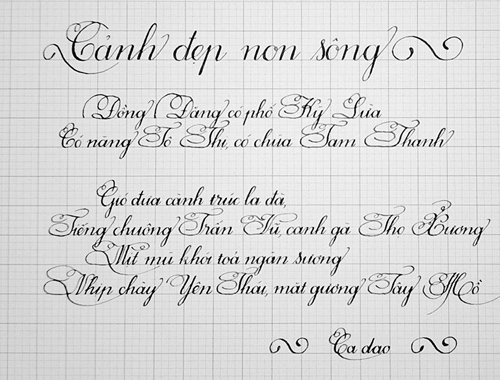 Cảnh đẹp non sông
Đồng Đăng có phố Kỳ Lừa
Có nàng Tô Thị, có chùa Tam Thanh
Gió đưa cành trúc la đà,
Tiếng chuông Trấn Vũ, canh gà Thọ Xương
Mịt mù khói toả ngàn sương
Nhịp chày Yên Thái, mặt gương Tây Hồ
Ca dao